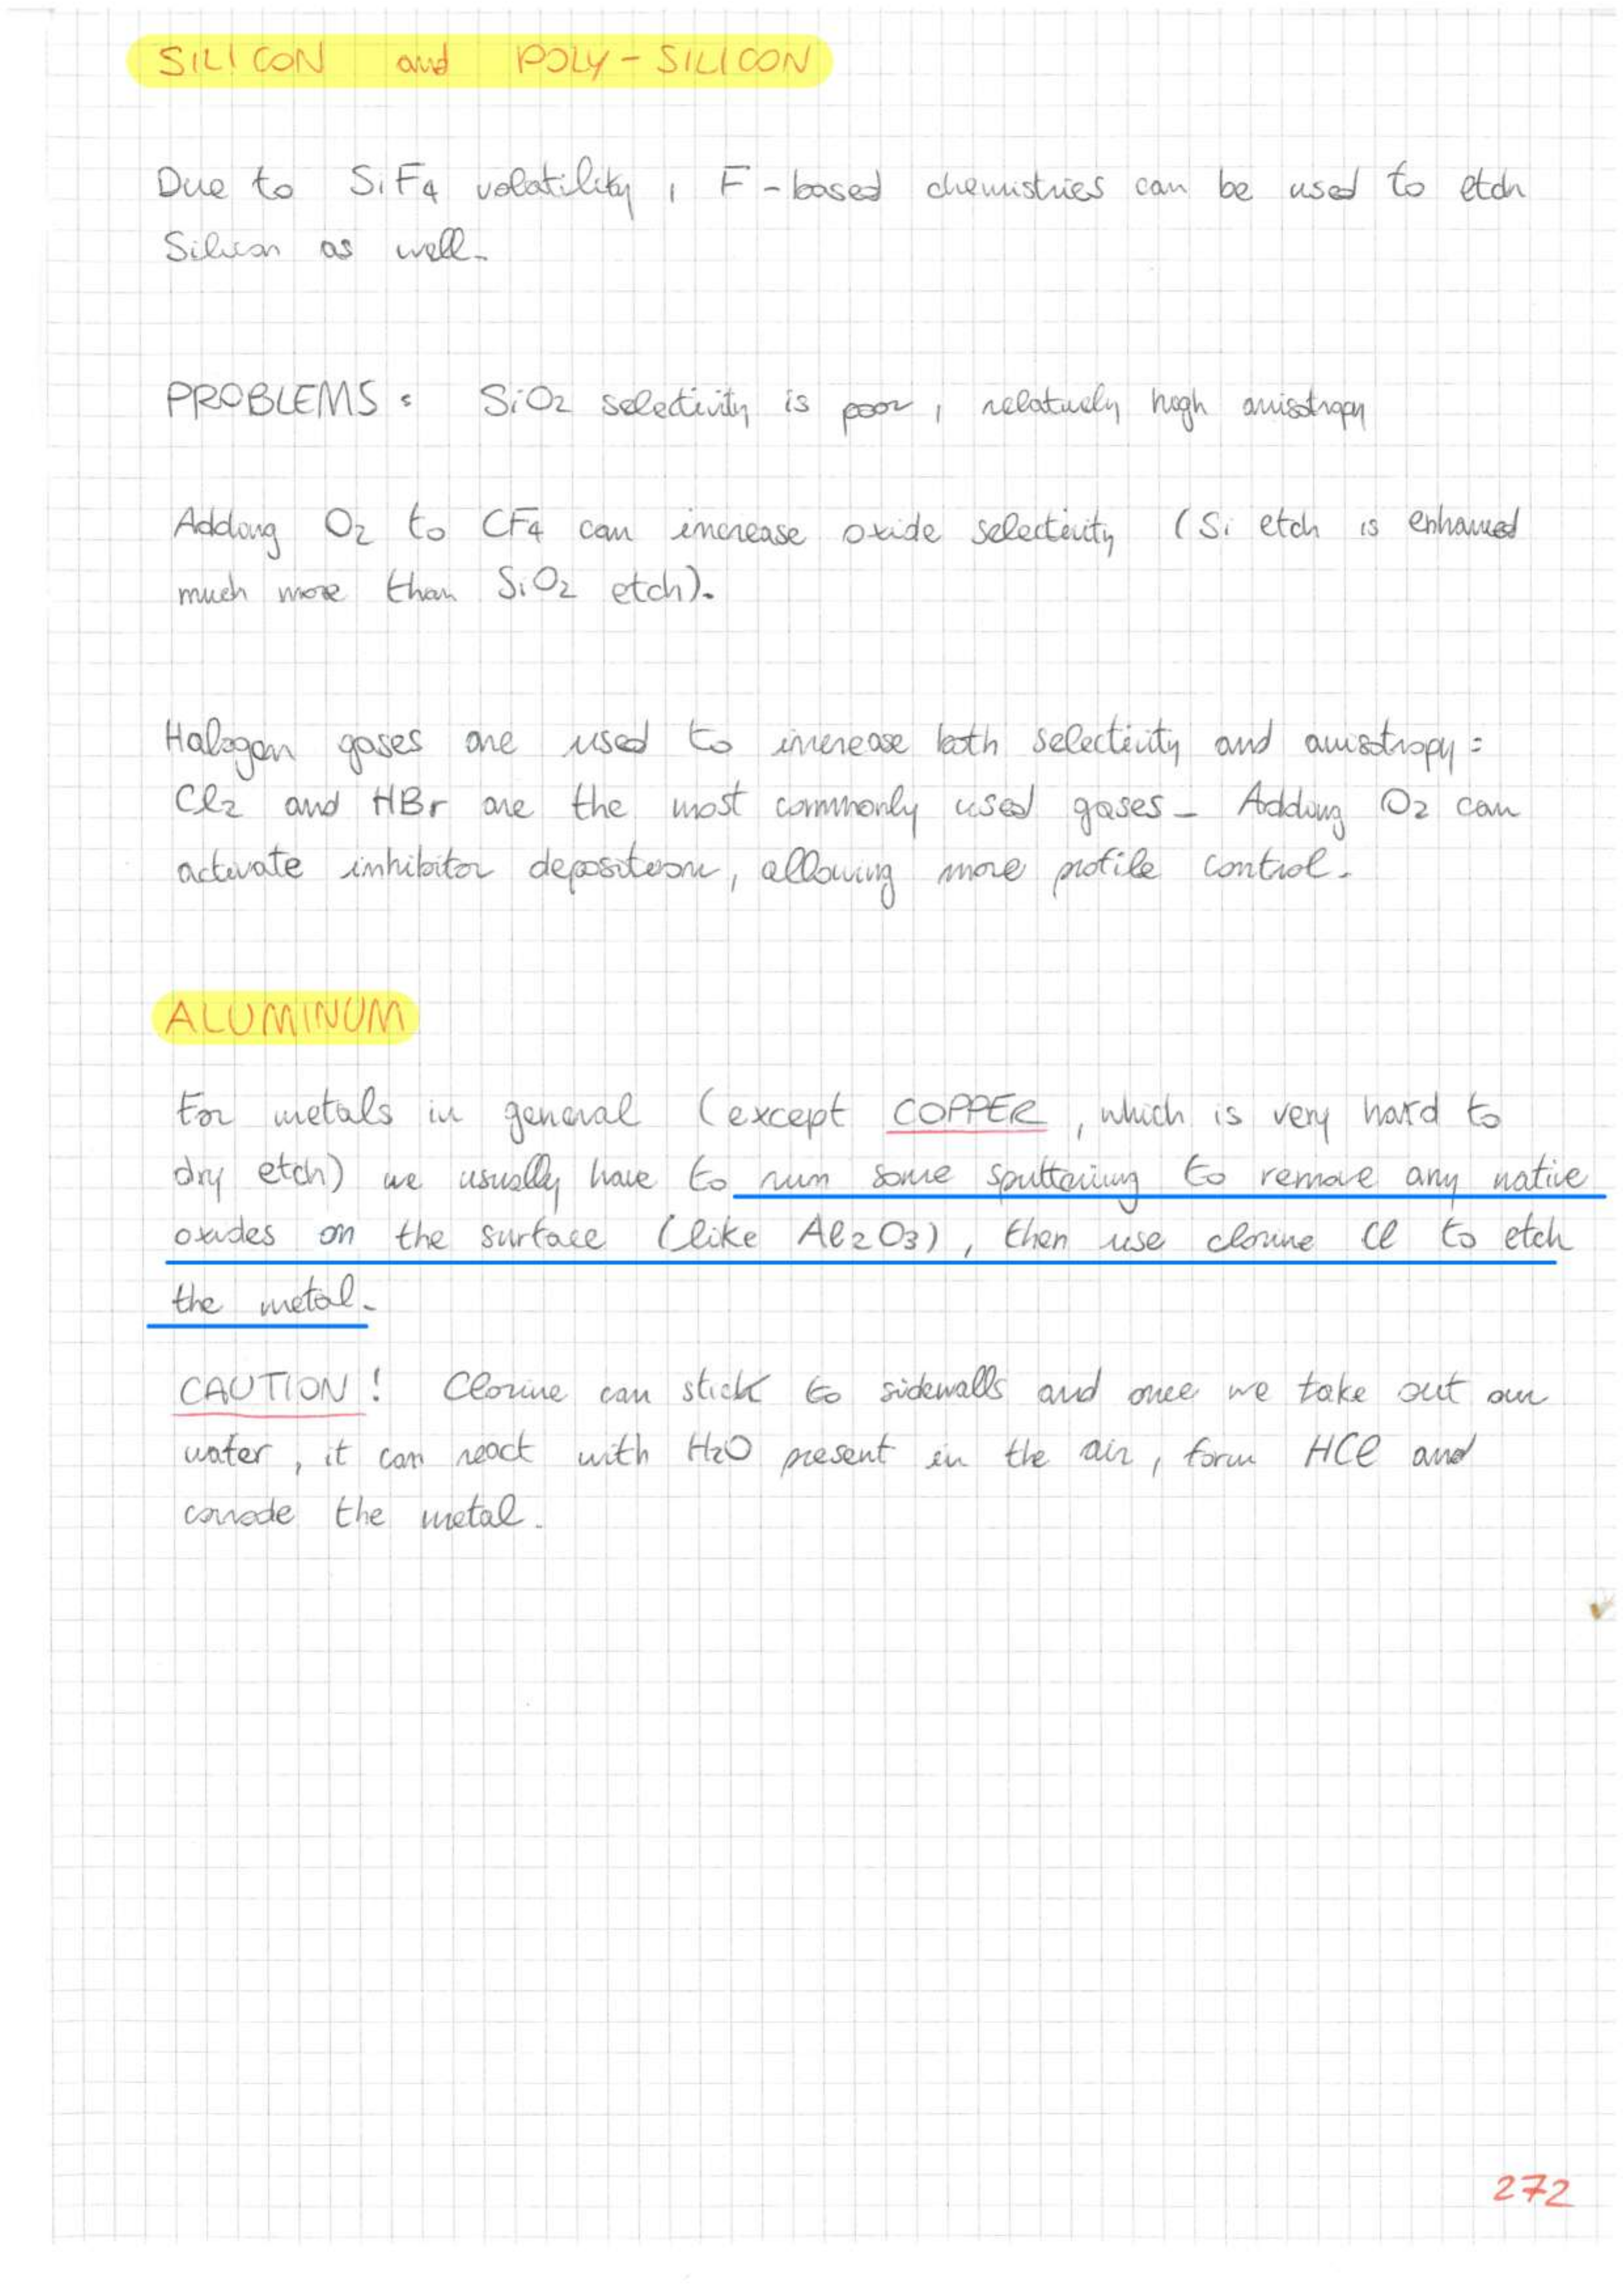 SILICON and POLY-SILICON
Due to SiF4 volatility, F-based chemistries can be used to etch
Silicon as well.
PROBLEMS: SiO2 selectivity is poor, relatively high anisotropy
Adding O2 to CF4 can increase oxide selectivity (Si etch is enhanced
much more than SiO2 etch).
Halogen gases are used to increase both selectivity and anisotropy:
Cl2 and HBr are the most commonly used gases. Adding O2 can
activate inhibitor deposition, allowing more profile control.
ALUMINUM
For metals in general (except COPPER, which is very hard to
dry etch) we usually have to run some sputtering to remove any native
oxides on the surface (like Al2O3), then use clorine Cl to etch
the metal.
CAUTION! Clorine can stick to sidewalls and once we take out our
water, it can react with H2O present in the air, form HCl and
corrode the metal.
272